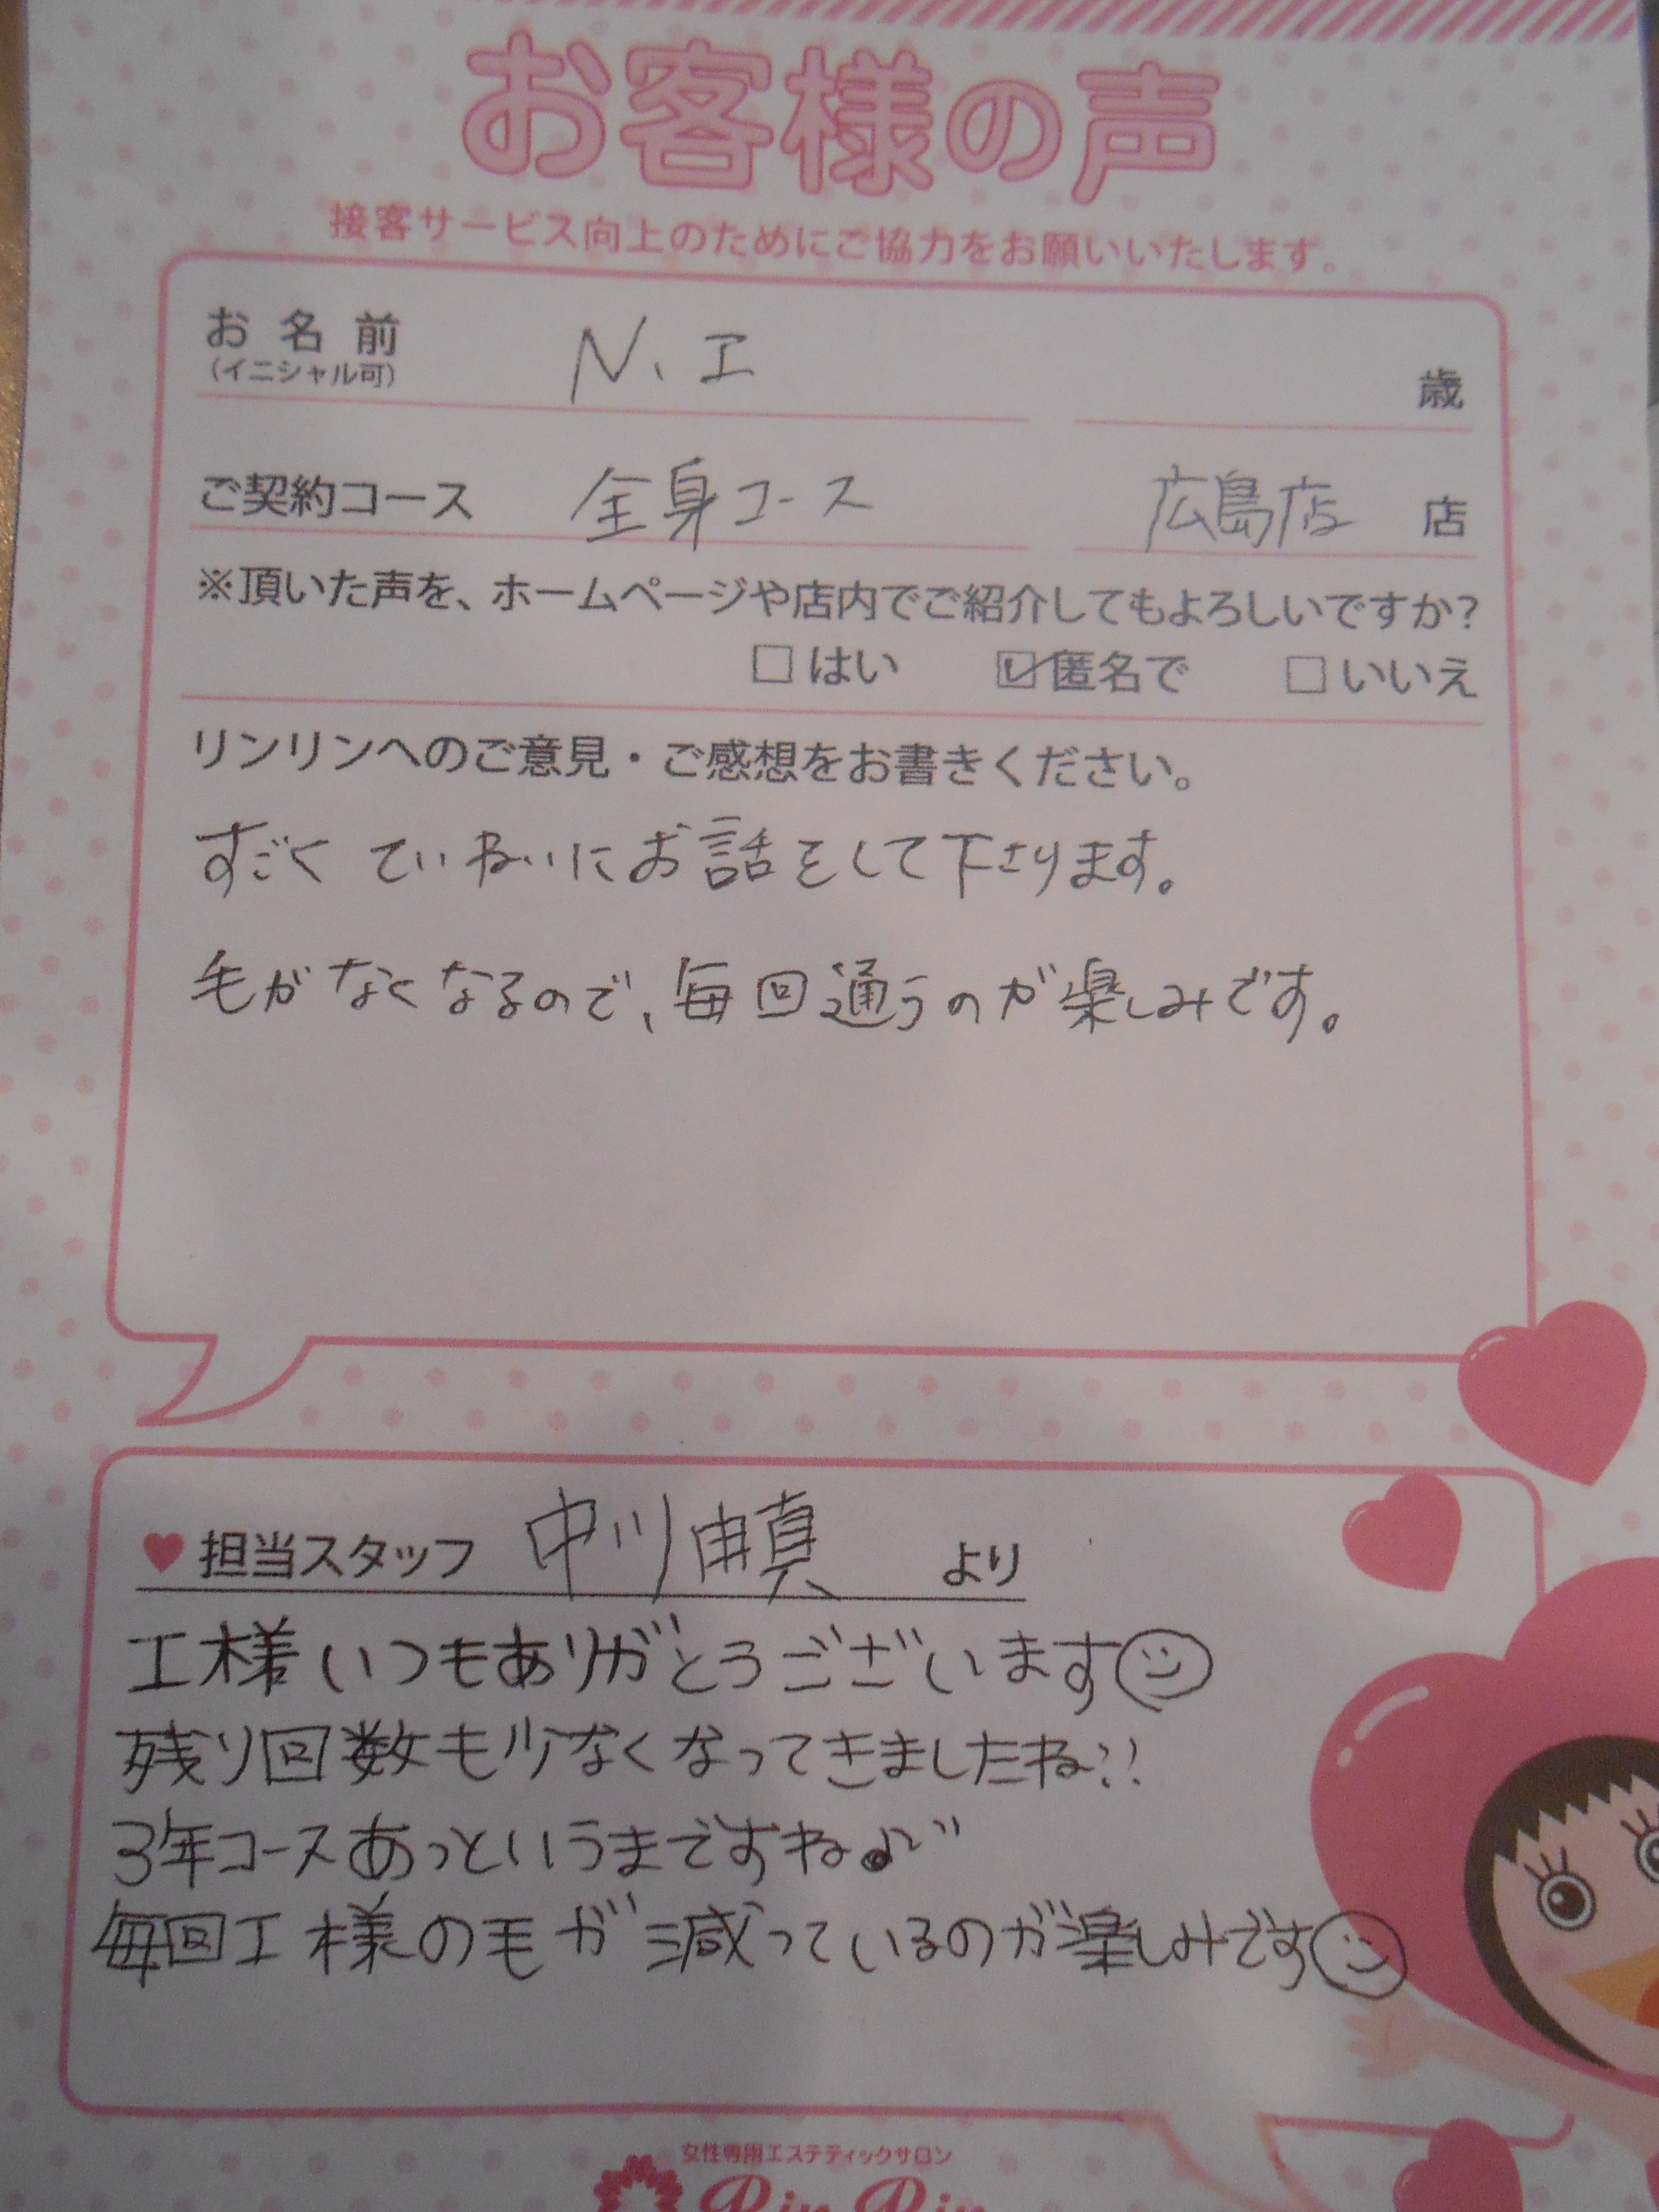 お客様の声
接客サービス向上のためにご協力をお願いいたします。
お名前 N、I 歳
(イニシャル可)
ご契約コース 全身コース 広島店 店
※頂いた声を、ホームページや店内でご紹介してもよろしいですか?
□はい ☑匿名で □いいえ
リンリンへのご意見・ご感想をお書きください。
すごくていねいにお話をして下さります。
毛がなくなるので、毎回通うのが楽しみです。
♥担当スタッフ 中川 真 より
I様いつもありがとうございます☺
残り回数も少なくなってきましたね!!
3年コースあっというまですね♪
毎回I様の毛が減っているのが楽しみです☺
女性専用エステティックサロン
Rin Rin